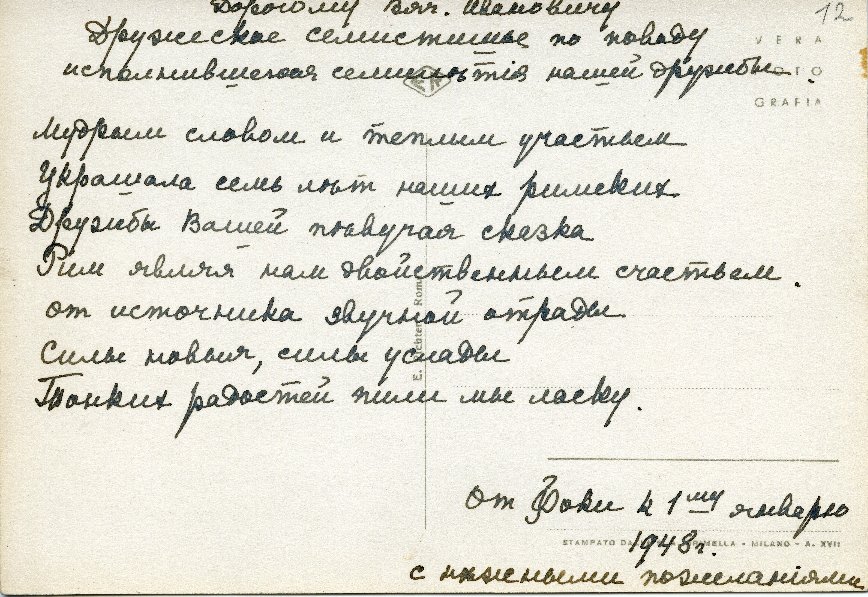 Дорогому Вяч. Ивановичу
12
Дружеское семистишье по поводу
исполнившегося семилѣтія нашей дружбы.
VERA
FOTO
GRAFIA
Мудрым словом и теплым участьем
Украшала семь лѣт наших римских
Дружбы Вашей пѣвучая сказка
Рим являя нам двойственным счастьем.
От источника звучной отрады
Силы новыя, силы услады
Тонких радостей пили мы ласку.
E. Richter Roma
От Фоки к 1му январю
1948г.
STAMPATO MILANO - A. XVII
с нѣжными пожеланіями